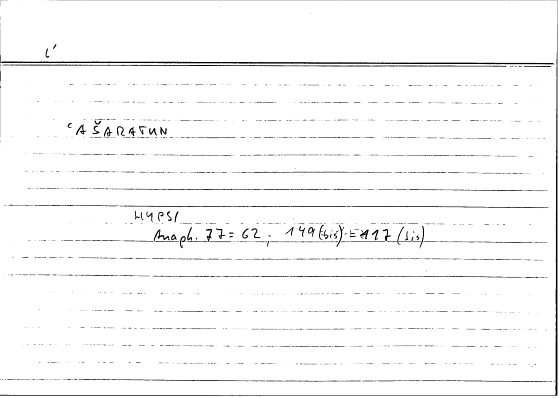 ι´
ʿAŠARATUN
HYPSI
Anaph. 77 = 62; 149 (bis) = 117 (bis)